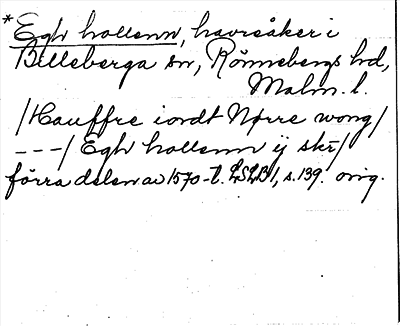 *Egh hollenn, havreåker i
Billeberga sn, Rönnebergs hd,
Malm. l.
/Hauffre iordt Nørre wong/
---/ Egh hollenn ij skr/
förra delen av 1570-t. LSLB1, s. 139. orig.